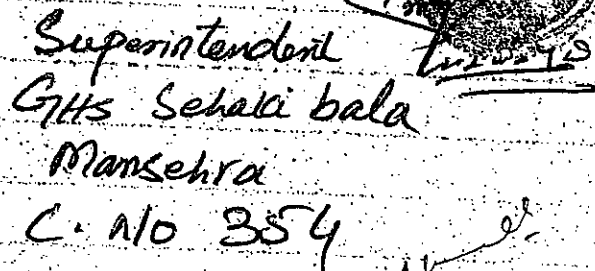 Superintendent
GHS Sehaki bala
Mansehra
C. N/o 354